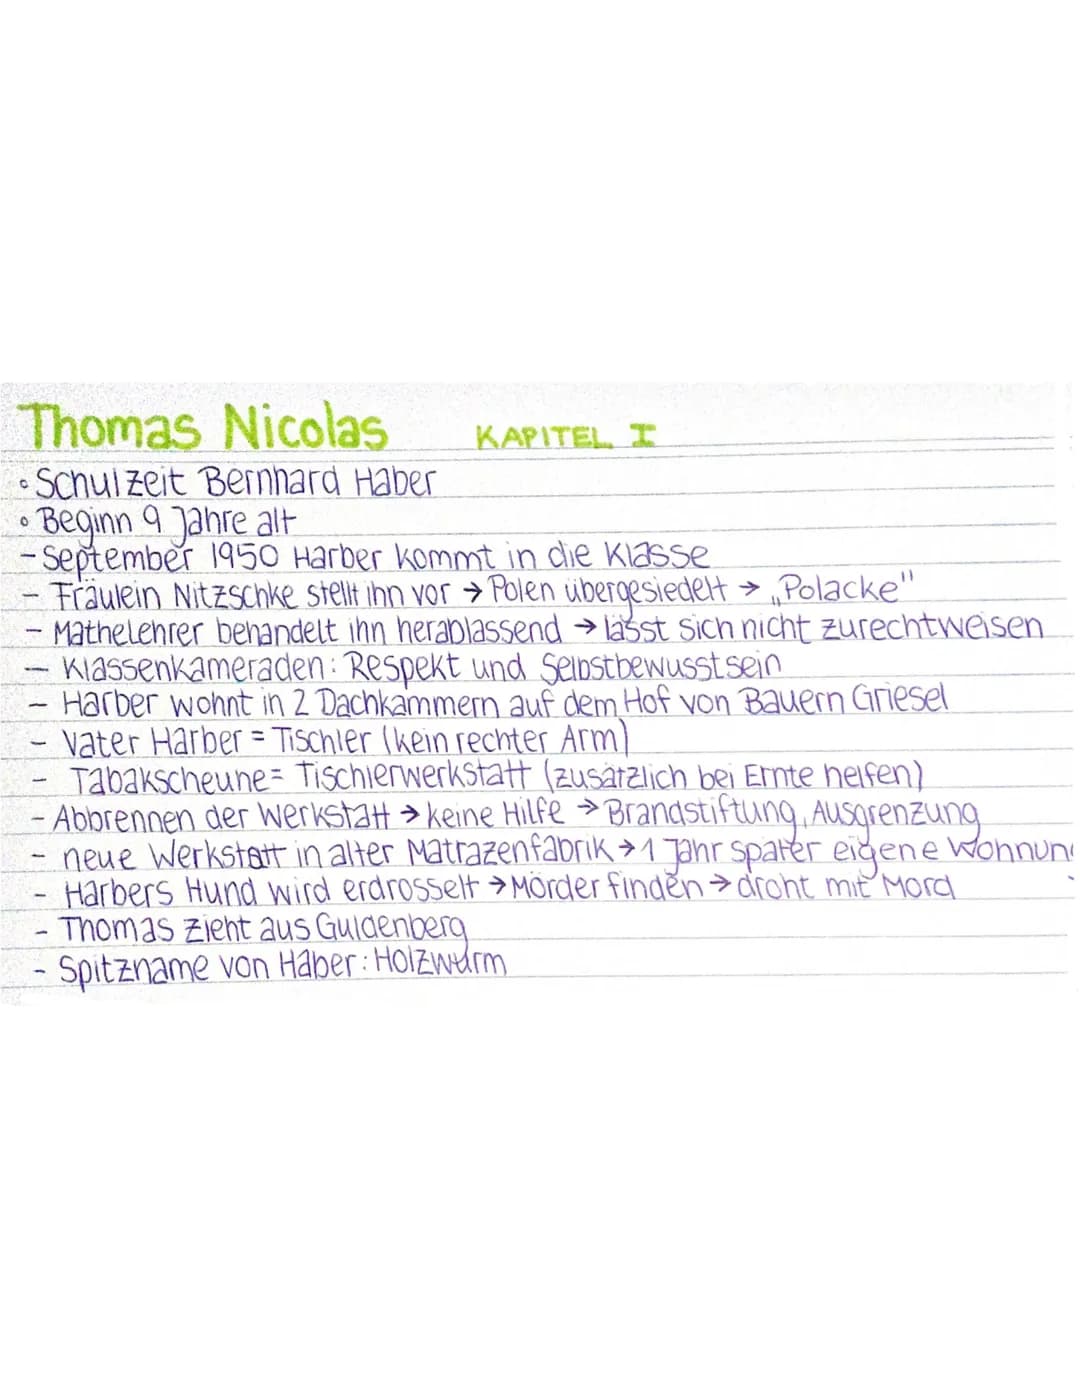 Thomas Nicolas KAPITEL I
• Schulzeit Bernhard Haber
• Beginn 9 Jahre alt
- September 1950 Harber kommt in die Klasse
- Fräulein Nitzschke stellt ihn vor → Polen übergesiedelt → „Polacke"
- Mathelehrer behandelt ihn herablassend → lässt sich nicht zurechtweisen
- Klassenkameraden: Respekt und Selbstbewusstsein
- Harber wohnt in 2 Dachkammern auf dem Hof von Bauern Griesel
- Vater Harber = Tischler (kein rechter Arm)
- Tabakscheune = Tischlerwerkstatt (zusätzlich bei Ernte helfen)
- Abbrennen der Werkstatt → keine Hilfe → Brandstiftung, Ausgrenzung
- neue Werkstatt in alter Matrazenfabrik → 1 Jahr später eigene Wohnun
- Harbers Hund wird erdrosselt → Mörder finden → droht mit Mord
- Thomas zieht aus Guldenberg
- Spitzname von Haber: Holzwurm